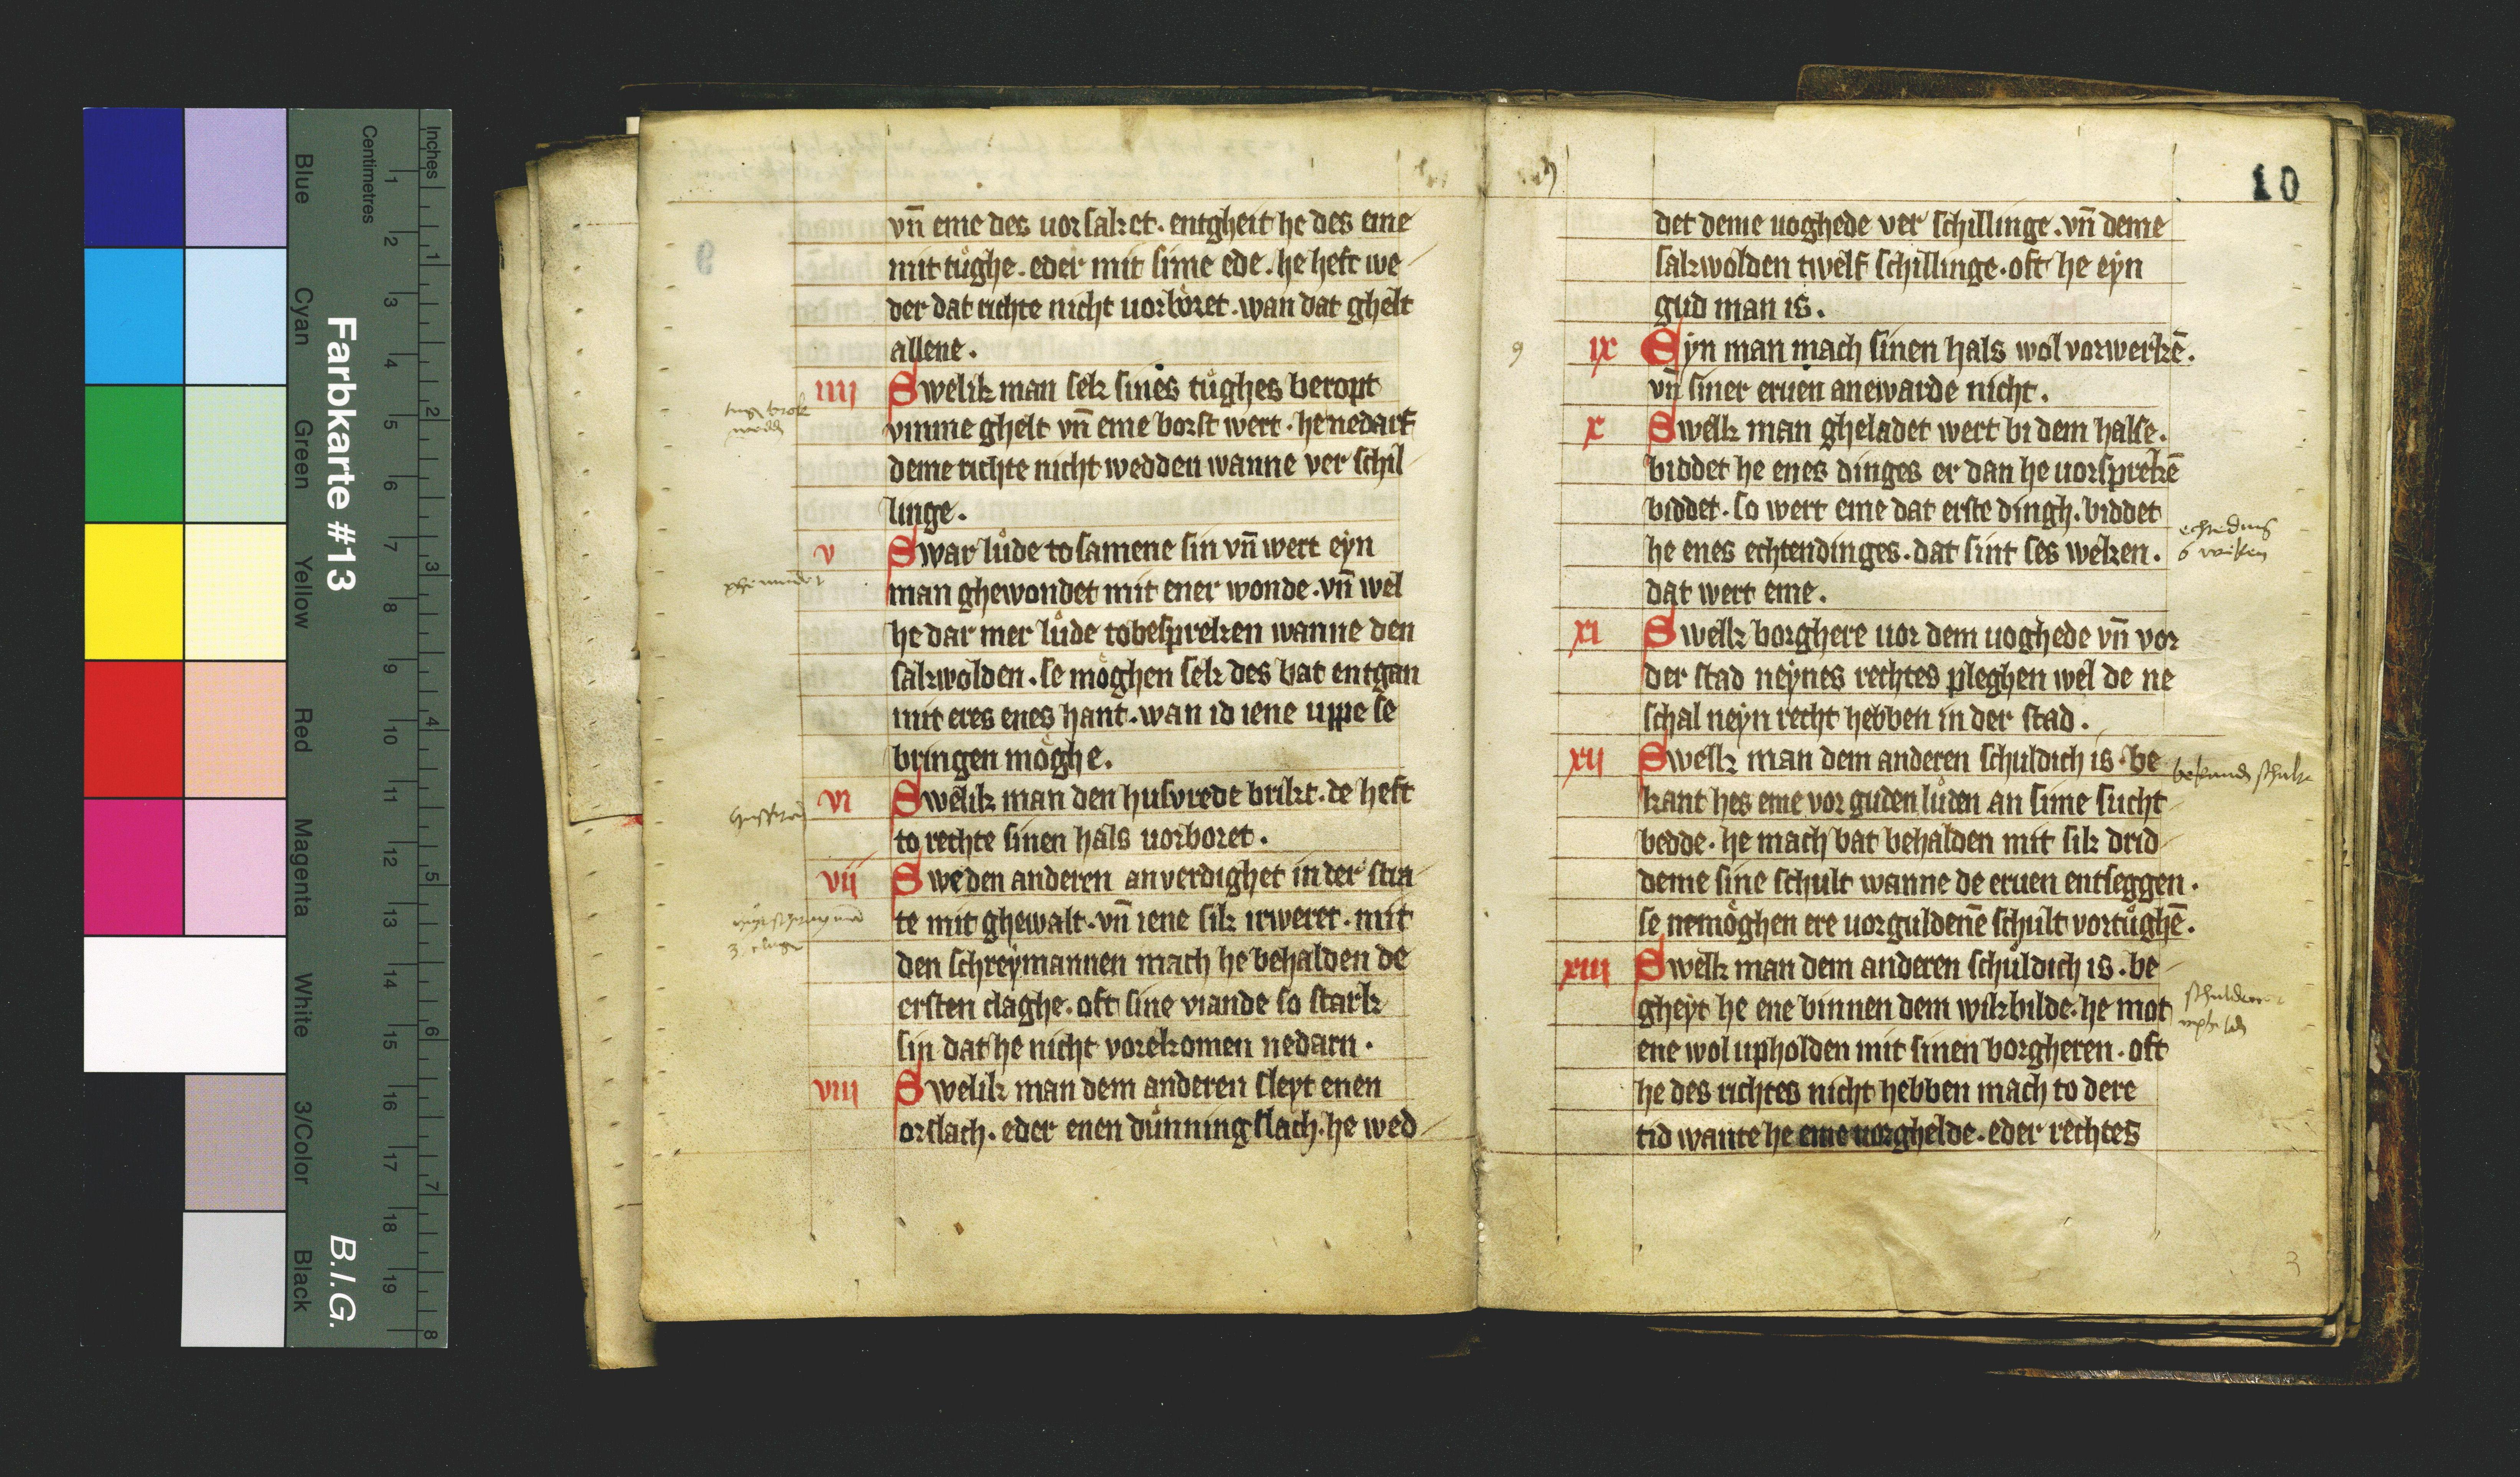 vn̄ eme des uorsaket. entgheit he des eme
mit tůghe. eder mit sime ede. he heft we
der dat richte nicht uorboret. wan dat ghelt
allene.
iiij Swelik man sek sines tůghes beropt
vmme ghelt vn̄ eme borst wert. he nedarf
deme richte nicht wedden wanne ver schil
linge.
v Swar lůde to samene sin vn̄ wert eyn
man ghewondet mit ener wonde. vn̄ wel
he dar mer lůde to bespreken wanne den
sakwolden. se moghen sek des bat entgan
mit eres enes hant. wan id iene uppe se
bringen moghe.
vi Swelik man den husvrede brikt. de heft
to rechte sinen hals uorboret.
vij Swe den anderen anverdighet in der stra
te mit ghewalt. vn̄ iene sik irweret. mit
den schreymannen mach he behalden de
ersten claghe. oft sine viande so stark
sin dat he nicht vorekomen nedarn.
viij Swelik man dem anderen sleyt enen
orslach. eder enen dunningslach. he wed
10
det deme uoghede ver schillinge. vn̄ deme
sakwolden twelf schillinge. oft he eyn
gud man is.
9 ix Eyn man mach sinen hals wol vorwerkē.
vn̄ siner eruen anewarde nicht.
x Swelk man gheladet wert bi dem halse.
biddet he enes dinges er dan he uorsprekē
biddet. so wert eme dat erste dingh. biddet
he enes echtendinges. dat sint ses weken.
dat wert eme.
xi Swelk borghere uor dem uoghede vn̄ vor
der stad neynes rechtes pleghen wel de ne
schal neyn recht hebben in der stad.
xij Swelk man dem anderen schuldich is. be
kant hes eme vor guden lůden an sime sucht
bedde. he mach bat behalden mit sik drid
deme sine schult wanne de eruen entseggen.
se nemoghen ere uorguldenē schult vortůghē.
xiij Swelk man dem anderen schuldich is. be
gheyt he ene binnen dem wikbilde. he mot
ene wol upholden mit sinen borgheren. oft
he des richtes nicht hebben mach to dere
tid wante he eme uorghelde. eder rechtes
3
Inches
Centimetres
Blue
Cyan
Green
Yellow
Red
Magenta
White
3/Color
Black
Farbkarte #13
B.I.G.